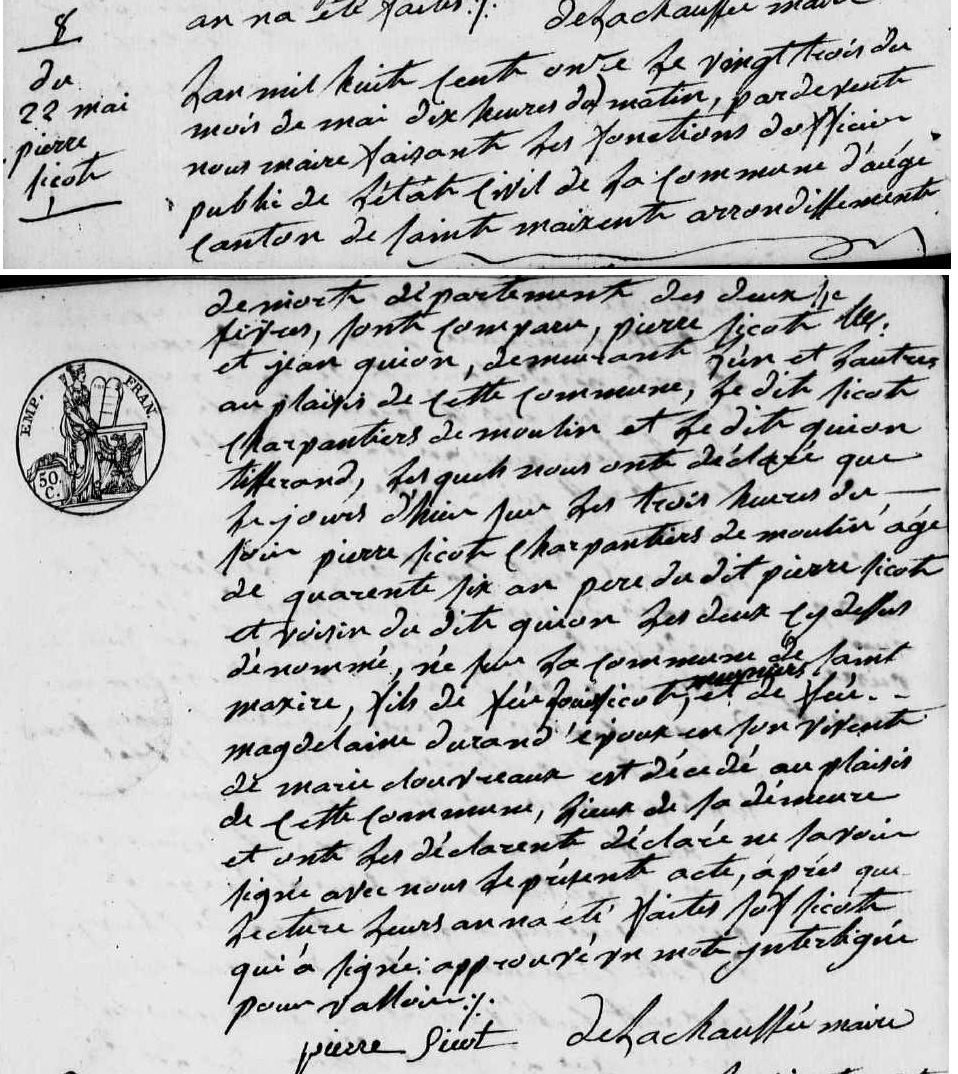 an na été faites ./. delachauffée maire
8
du
22 mai
pierre
sicoth
1
Lan mil huith Centh onze Le vingt trois du
mois de mai dix heures du matin, pardevent
nous maire faisanth Les fonctions dofficier
public de Létat Civil de La Commune d'augé
Canton de sainth maixenth arrondissementh
de niorth département des deux
sevres, sont Comparu, pierre sicoth
et jean guion, demeuranth l'un et Lautres
au plaisis de Cette Commune, Le dit sicoth
Charpantiers de moulin et Le dit guion
tisserand, Lesquels nous onth déclaré que
Le jours d'hier sur Les trois heures du
soir pierre sicoth Charpantiers de moulin âgé
de quarente six an pere du dit pierre sicoth
et voisin du dith guion Les deux Cy dessus
dénommé, né sur La Commune de saint
meuniers
maxire, fils de feu sicoth, et de feu
magdelaine durand époux en son vivente
de marie douvreaux est décédé au plaisis
de Cette Commune, Lieux de sa démeure
et onth Les déclarenth déclaré ne savoir
signé avec nous Le présente acte, après que
Lecture Leurs an na été faites sof sicoth
qui a signé: approuvé un mote interligné
pour valloir ./.
pierre Sicot delachauffée maire
EMP. FRAN
50
C.